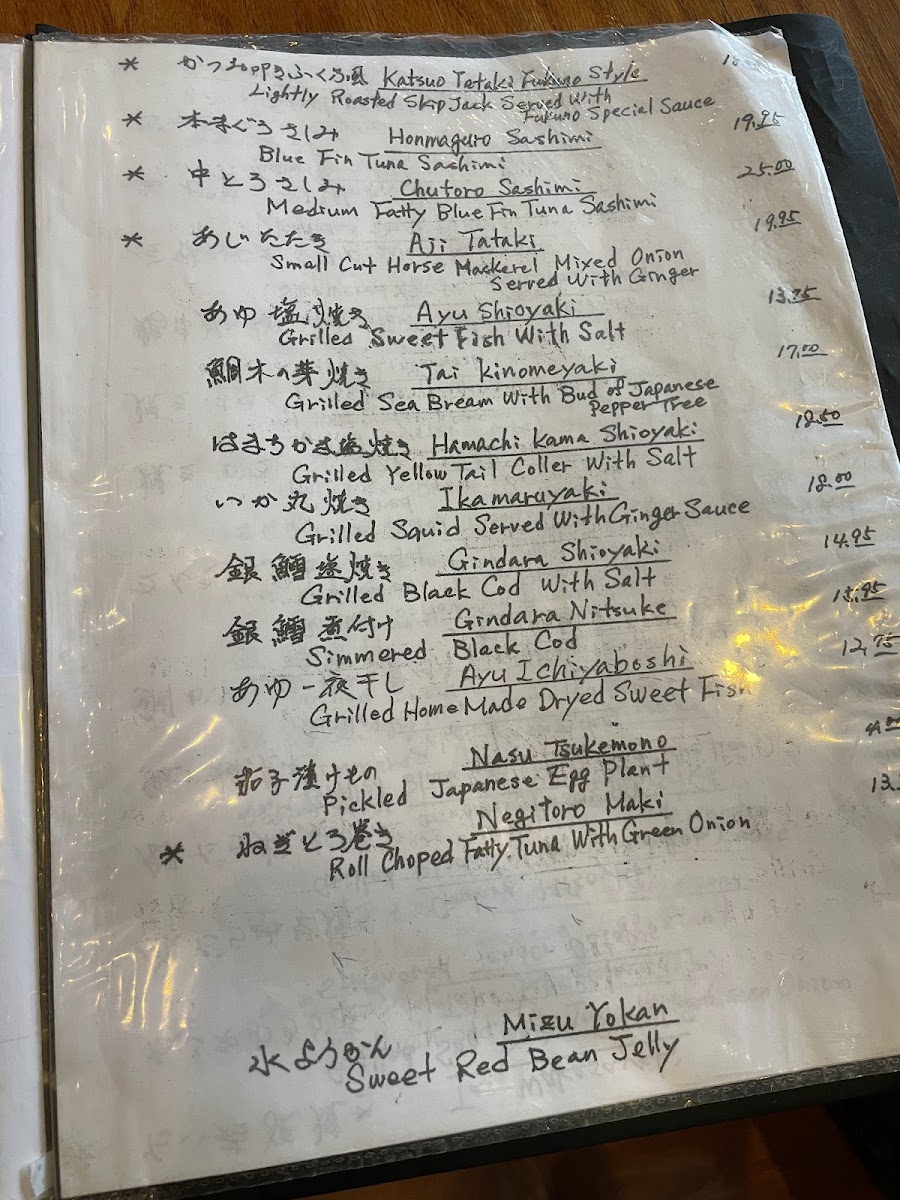 * かつお叩きふくろ風 Katsuo Tataki Fukuro Style
Lightly Roasted Skip Jack Served With
Fukuro Special Sauce
* 本まぐろさしみ Honmaguro Sashimi 19.95
Blue Fin Tuna Sashimi
* 中とろさしみ Chutoro Sashimi 25.00
Medium Fatty Blue Fin Tuna Sashimi
* あじたたき Aji Tataki 19.95
Small Cut Horse Mackerel Mixed Onion
Served With Ginger
あゆ塩焼き Ayu Shioyaki
Grilled Sweet Fish With Salt
鯛木の芽焼き Tai Kinomeyaki 17.00
Grilled Sea Bream With Bud of Japanese
Pepper Tree
はまちかま塩焼き Hamachi Kama Shioyaki
Grilled Yellow Tail Coller With Salt
いか丸焼き Ikamaruyaki 18.00
Grilled Squid Served With Ginger Sauce
銀鱈塩焼き Gindara Shioyaki 14.95
Grilled Black Cod With Salt
銀鱈煮付け Gindara Nitsuke 15.95
Simmered Black Cod
あゆ一夜干し Ayu Ichiyaboshi 12.75
Grilled Home Made Dryed Sweet Fish
茄子漬けもの Nasu Tsukemono
Pickled Japanese Egg Plant
* ねぎとろ巻き Negitoro Maki
Roll Choped Fatty Tuna With Green Onion
水ようかん Mizu Yokan
Sweet Red Bean Jelly